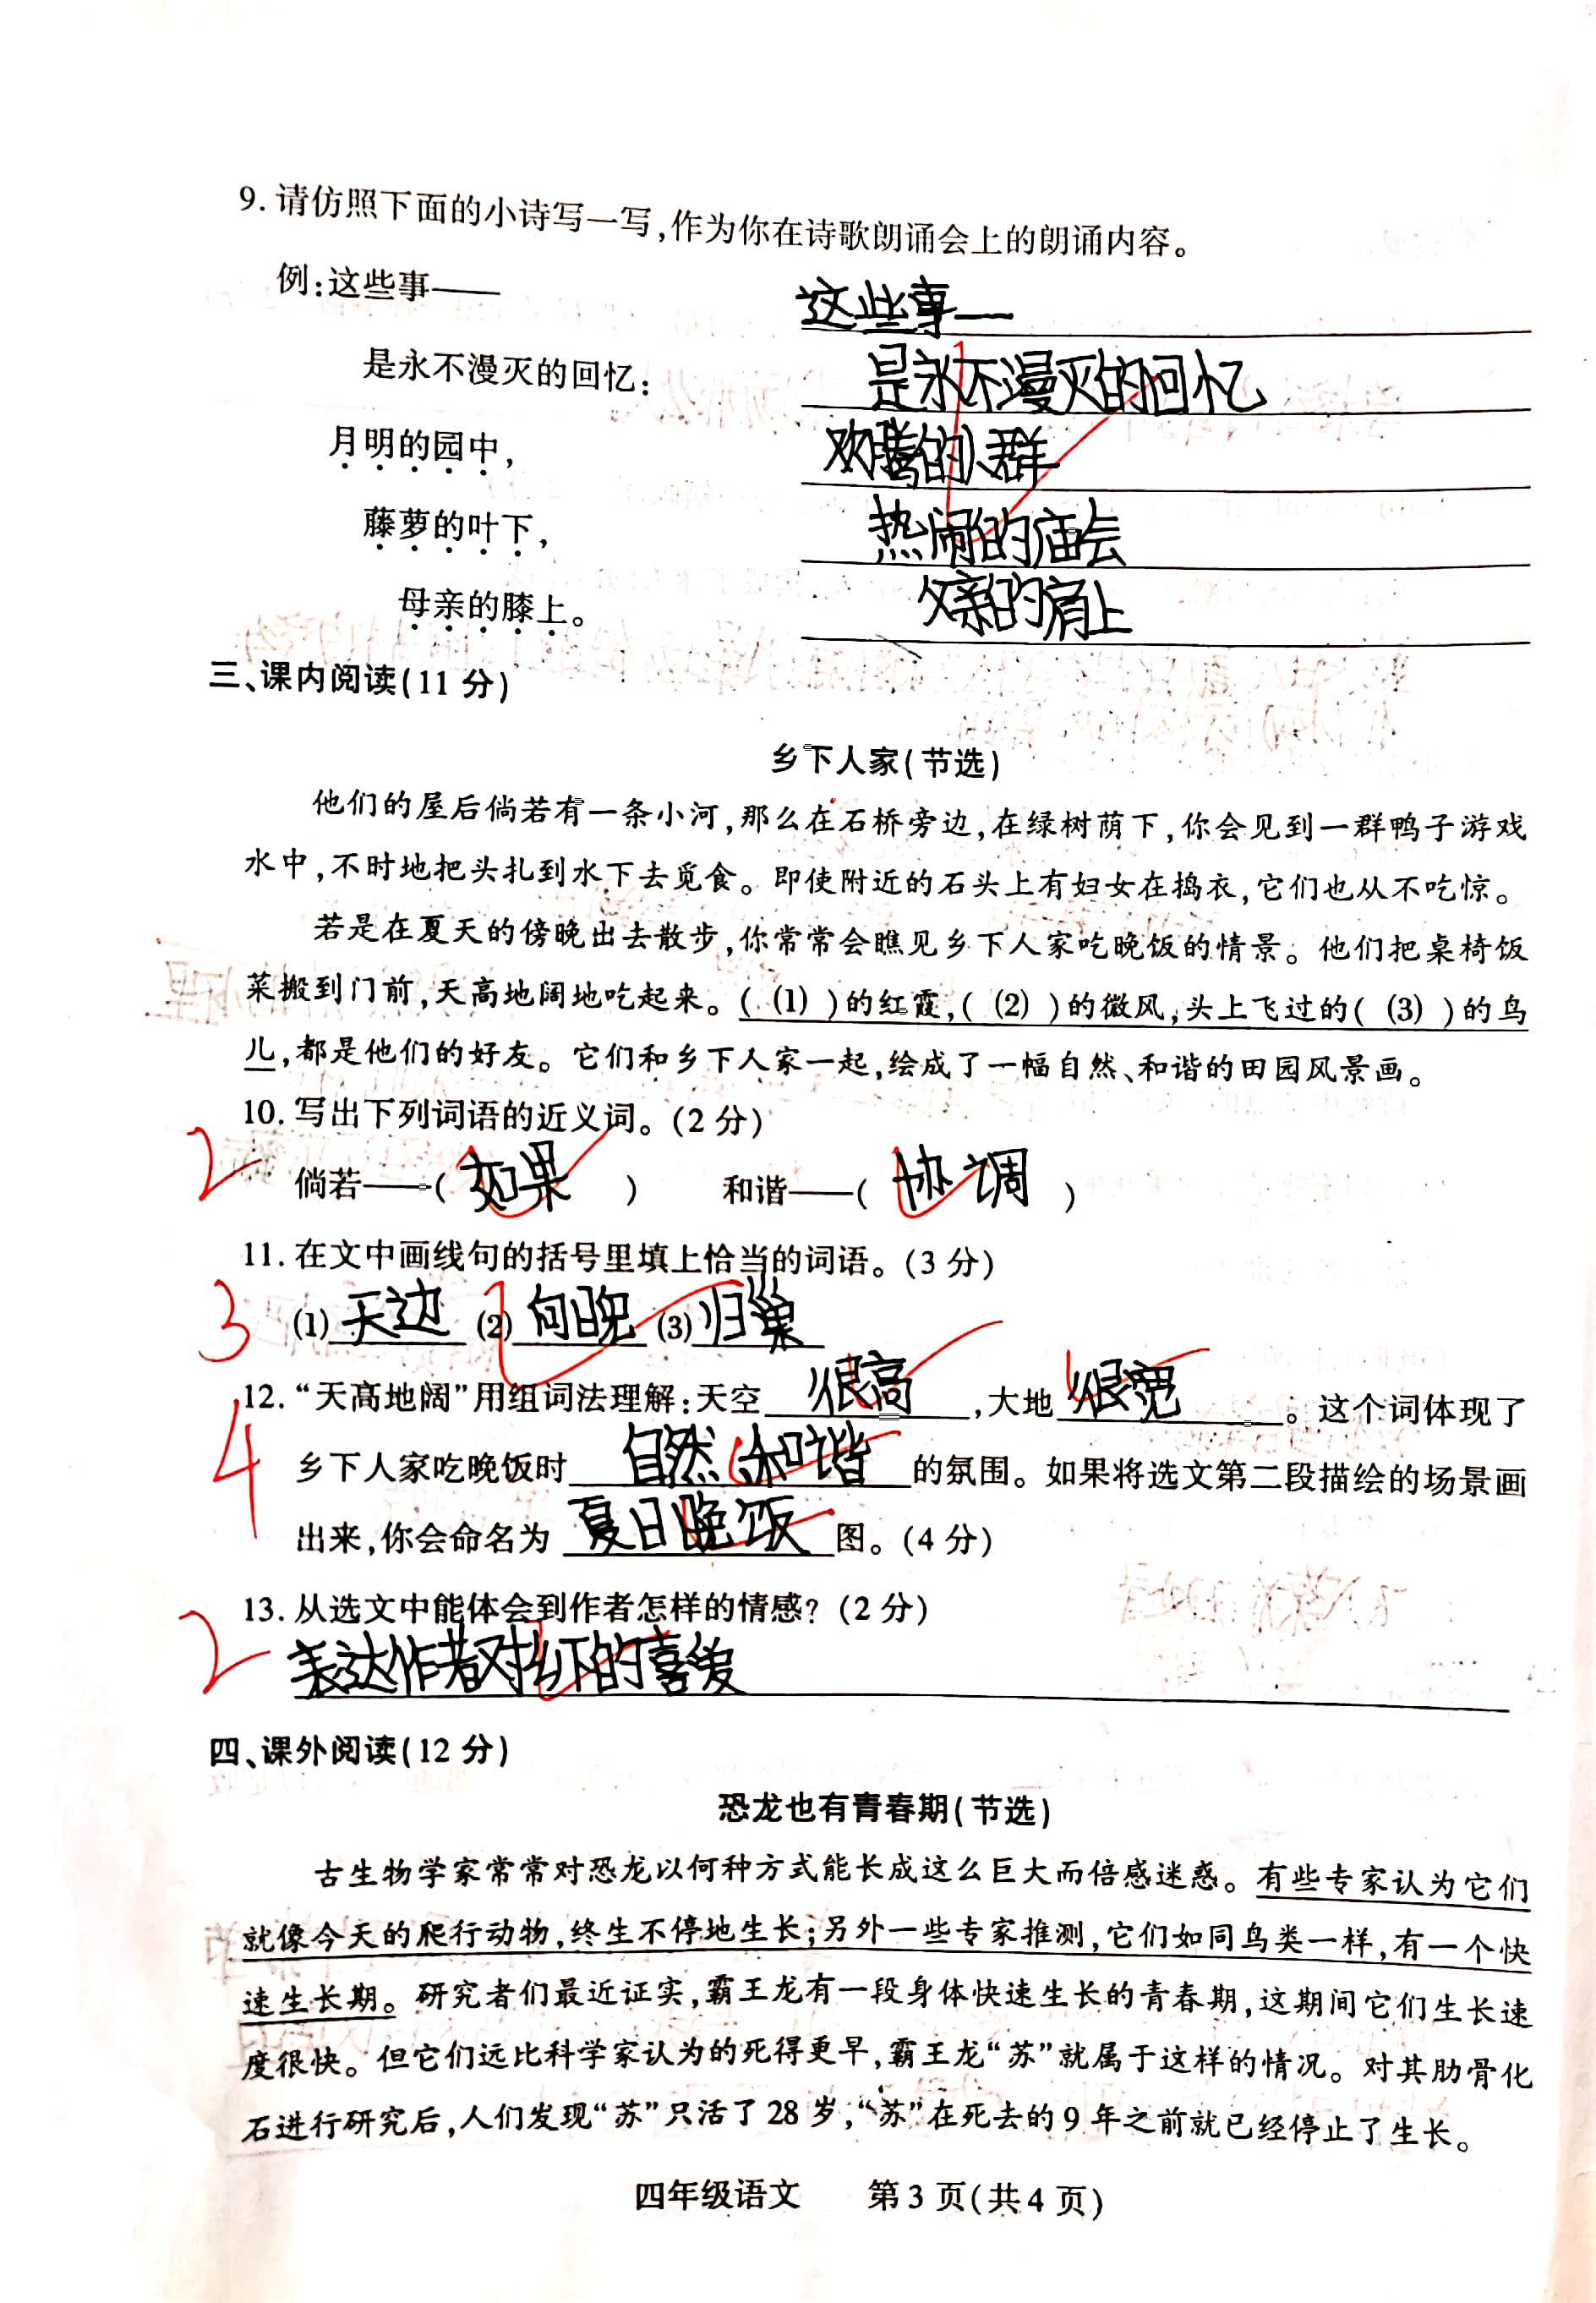 9. 请仿照下面的小诗写一写,作为你在诗歌朗诵会上的朗诵内容。
例:这些事——
是永不漫灭的回忆:
月明的园中,
藤萝的叶下,
母亲的膝上。
这些事—
是永不漫灭的回忆
欢腾的人群
热闹的庙会
父亲的肩上
三、课内阅读(11 分)
乡下人家(节选)
他们的屋后倘若有一条小河,那么在石桥旁边,在绿树荫下,你会见到一群鸭子游戏
水中,不时地把头扎到水下去觅食。即使附近的石头上有妇女在捣衣,它们也从不吃惊。
若是在夏天的傍晚出去散步,你常常会瞧见乡下人家吃晚饭的情景。他们把桌椅饭
菜搬到门前,天高地阔地吃起来。( (1) )的红霞,( (2) )的微风,头上飞过的( (3) )的鸟
儿,都是他们的好友。它们和乡下人家一起,绘成了一幅自然、和谐的田园风景画。
10. 写出下列词语的近义词。(2 分)
2 倘若——( 如果 ) 和谐——( 协调 )
11. 在文中画线句的括号里填上恰当的词语。(3 分)
3 (1) 天边 (2) 向晚 (3) 归巢
12. “天高地阔”用组词法理解:天空 很高 ,大地 很宽 。这个词体现了
4 乡下人家吃晚饭时 自然 和谐 的氛围。如果将选文第二段描绘的场景画
出来,你会命名为 夏日晚饭 图。(4 分)
13. 从选文中能体会到作者怎样的情感? (2 分)
2 表达作者对乡下的喜爱
四、课外阅读(12 分)
恐龙也有青春期(节选)
古生物学家常常对恐龙以何种方式能长成这么巨大而倍感迷惑。有些专家认为它们
就像今天的爬行动物,终生不停地生长;另外一些专家推测,它们如同鸟类一样,有一个快
速生长期。研究者们最近证实,霸王龙有一段身体快速生长的青春期,这期间它们生长速
度很快。但它们远比科学家认为的死得更早,霸王龙“苏”就属于这样的情况。对其肋骨化
石进行研究后,人们发现“苏”只活了 28 岁,“苏”在死去的 9 年之前就已经停止了生长。
四年级语文 第 3 页(共 4 页)